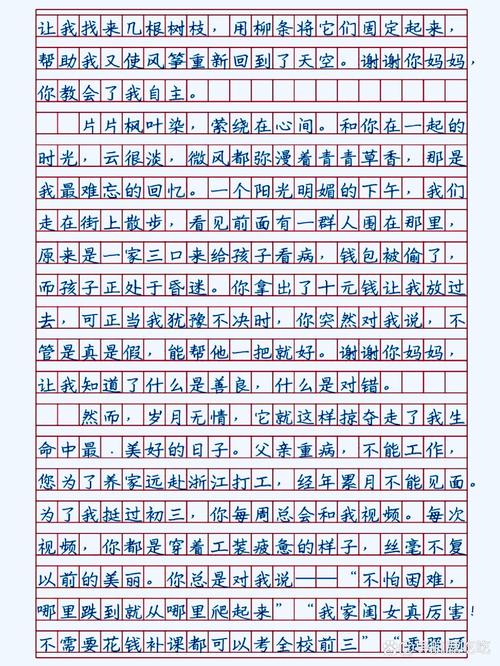 让我找来几根树枝，用柳条将它们固定起来，
帮助我又使风筝重新回到了天空。谢谢你妈妈，
你教会了我自主。
片片枫叶染，萦绕在心间。和你在一起的
时光，云很淡，微风都弥漫着青青草香，那是
我最难忘的回忆。一个阳光明媚的下午，我们
走在街上散步，看见前面有一群人围在那里，
原来是一家三口来给孩子看病，钱包被偷了，
而孩子正处于昏迷。你拿出了十元钱让我放过
去，可正当我犹豫不决时，你突然对我说，不
管是真是假，能帮他一把就好。谢谢你妈妈，
让我知道了什么是善良，什么是对错。
然而，岁月无情，它就这样掠夺走了我生
命中最．美好的日子。父亲重病，不能工作，
您为了养家远赴浙江打工，经年累月不能见面。
为了我挺过初三，你每周总会和我视频。每次
视频，你都是穿着工装疲惫的样子，丝毫不复
以前的美丽。你总是对我说——“不怕困难，
哪里跌到就从哪里爬起来”“我家闺女真厉害！
不需要花钱补课都可以考全校前三”“